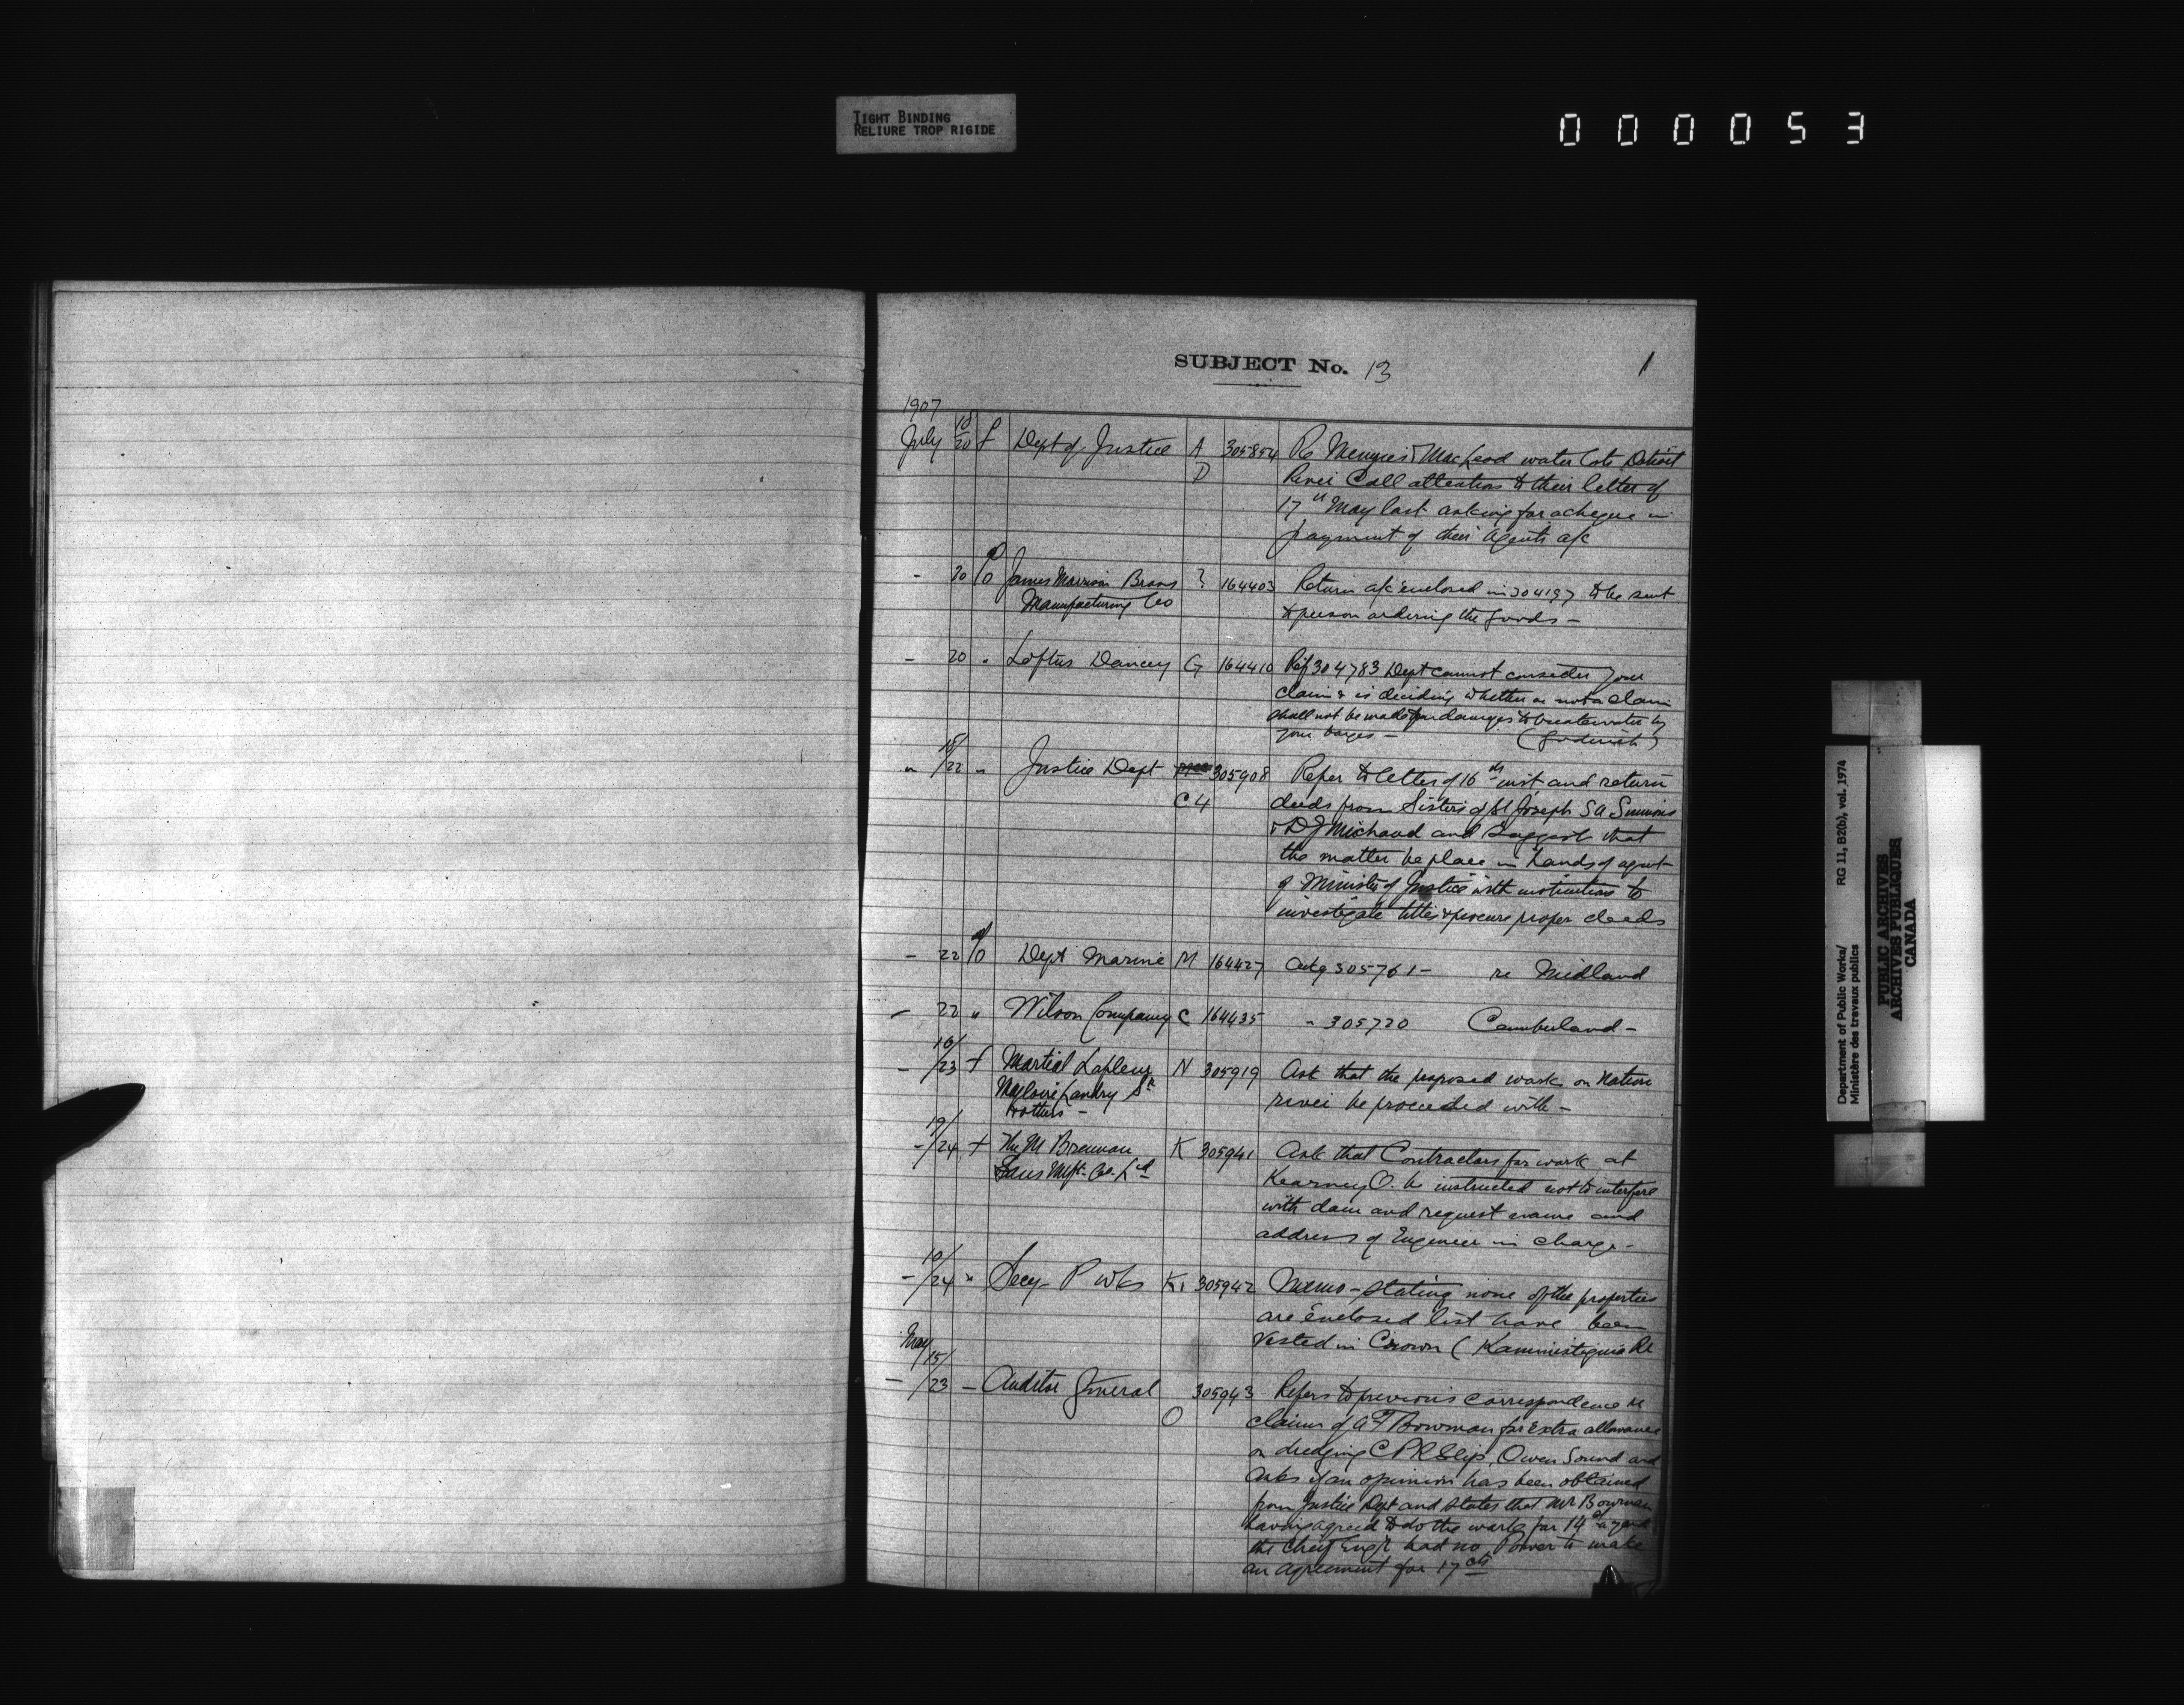 TIGHT BINDING
RELIURE TROP RIGIDE
000053
SUBJECT No. 13
1
1907
July 18/20 f Dept of Justice A 305854 Re Menzies & MacLeod water lots Detroit
D River Call attention to their letter of
17th May last asking for a cheque in
payment of their Agents a/c
- 20 James Morrison Brass ? 164403 Return a/c enclosed in 304197 to be sent
Manufacturing Co to person ordering the goods -
- 20 " Loftus Dancey G 164410 Ref 304783 Dept cannot consider your
claim & is deciding whether or not a claim
shall not be made for damages to breakwater by
your barges - (Goderich)
" 18/22 " Justice Dept 305908 Refer to letter of 16th inst and return
C4 deeds from Sisters of St Joseph SA Simmons
& D J Michaud and suggest that
the matter be place in hands of agent
of Minister of Justice with instructions to
investigate titles & procure proper deeds
- 22 Dept Marine M 164427 Ackg 305761 - re Midland
- 22 " Wilson Company C 164435 " 305720 Cumberland -
- 16/23 f Martial Lafleur N 305919 Ask that the proposed work on Nation
Landry Sr river be proceeded with -
& others -
- 19/24 f The M Brennan K 305941 Ask that Contractors for work at
& Sons Mfg. Co. Ld Kearney O. be instructed not to interfere
with dam and request name and
address of Engineer in charge -
- 10/24 " Secy P Wks K1 305942 Memo - stating none of the properties
are enclosed list have been
vested in Crown (Kaministiquia R
May
- 15/23 - Auditor General 305943 Refers to previous correspondence re
O claims of A F Bowman for Extra allowance
on dredging C P R Slip, Owen Sound and
asks if an opinion has been obtained
from Justice Dept and states that Mr Bowman
having agreed to do the work for 14c a yard
the Chief Engr had no Power to make
an agreement for 17 cts
Department of Public Works/ RG 11, B2(b), vol. 1974
Ministère des travaux publics
PUBLIC ARCHIVES
ARCHIVES PUBLIQUES
CANADA